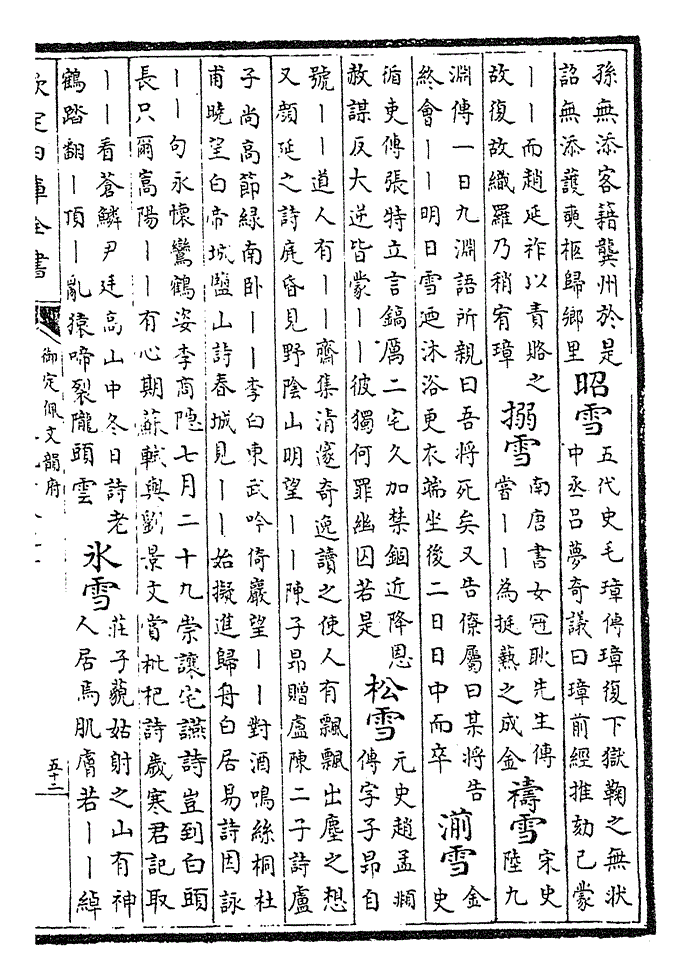 孫無添客籍龔州於是
詔無添護奭柩歸鄉里
昭雪
五代史毛璋傳璋復下獄鞠之無狀
中丞呂夢奇議曰璋前經推劾已蒙
——而趙延祚以責賂之
故復故織羅乃稍宥璋
搦雪
南唐書女冠耿先生傳
嘗——為挺爇之成金
禱雪
宋史
陸九
淵傳一日九淵語所親曰吾將死矣又告僚屬曰某將告
終會——明日雪迺沐浴更衣端坐後二日日中而卒
湔雪
金
史
循吏傳張特立言鎬厲二宅久加禁錮近降恩
赦謀反大逆皆蒙——彼獨何罪幽囚若是
松雪
元史趙孟頫
傳字子昂自
號——道人有——齋集清邃奇逸讀之使人有飄飄出塵之想
又顔延之詩庭昏見野陰山明望——陳子昂贈盧陳二子詩盧
子尚高節緑南卧——李白東武吟倚巖望——對酒鳴絲桐杜
甫曉望白帝城鹽山詩春城見——始擬進歸舟白居易詩因詠
——句永懷鸞鶴姿李商隱七月二十九崇讓宅讌詩豈到白頭
長只爾嵩陽——有心期蘇軾與劉景文賞枇杷詩歲寒君記取
——看蒼鱗尹廷高山中冬日詩老
鶴踏翻—頂—亂猿啼裂隴頭雲
氷雪
莊子藐姑射之山有神
人居焉肌膚若——綽
欽定四庫全書
御定佩文韻府
五十二